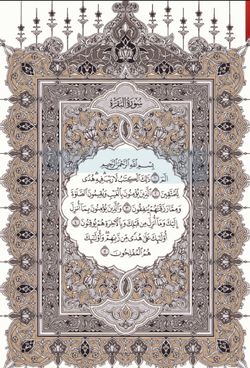 سُورَةُ البَقَرَةِ
بِسْمِ اللَّهِ الرَّحْمَٰنِ الرَّحِيمِ
الٓمٓ ۝١ ذَٰلِكَ الْكِتَابُ لَا رَيْبَ فِيهِ هُدًى
لِّلْمُتَّقِينَ ۝٢ الَّذِينَ يُؤْمِنُونَ بِالْغَيْبِ وَيُقِيمُونَ الصَّلَاةَ
وَمِمَّا رَزَقْنَاهُمْ يُنفِقُونَ ۝٣ وَالَّذِينَ يُؤْمِنُونَ بِمَا أُنزِلَ
إِلَيْكَ وَمَا أُنزِلَ مِن قَبْلِكَ وَبِالْآخِرَةِ هُمْ يُوقِنُونَ ۝٤
أُولَٰئِكَ عَلَىٰ هُدًى مِّن رَّبِّهِمْ وَأُولَٰئِكَ
هُمُ الْمُفْلِحُونَ ۝٥